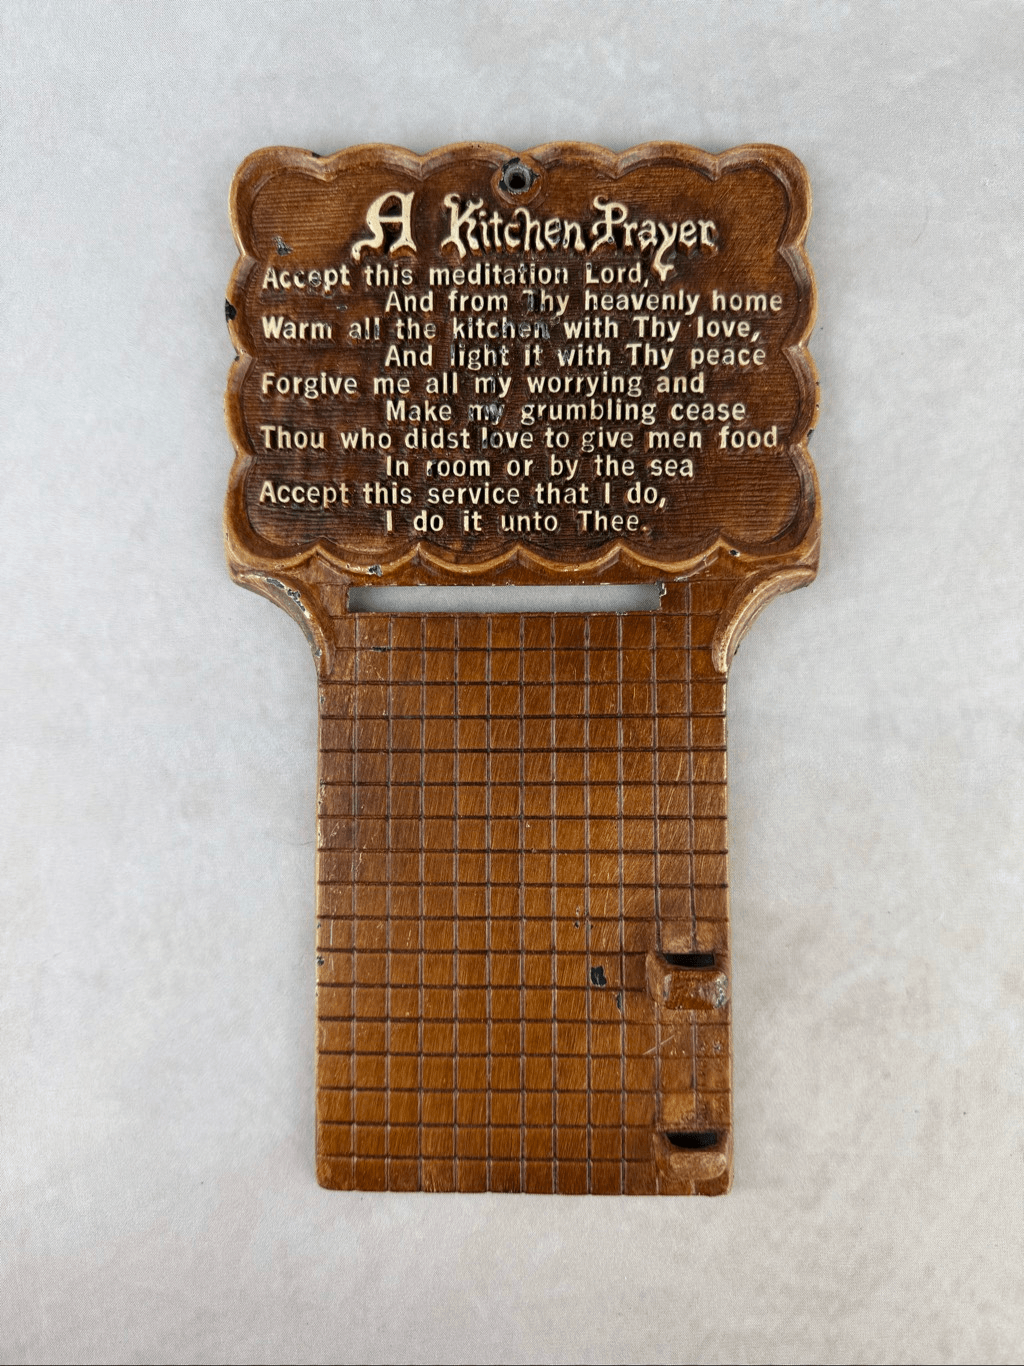 A Kitchen Prayer
Accept this meditation Lord,
And from Thy heavenly home
Warm all the kitchen with Thy love,
And light it with Thy peace
Forgive me all my worrying and
Make my grumbling cease
Thou who didst love to give men food
In room or by the sea
Accept this service that I do,
I do it unto Thee.